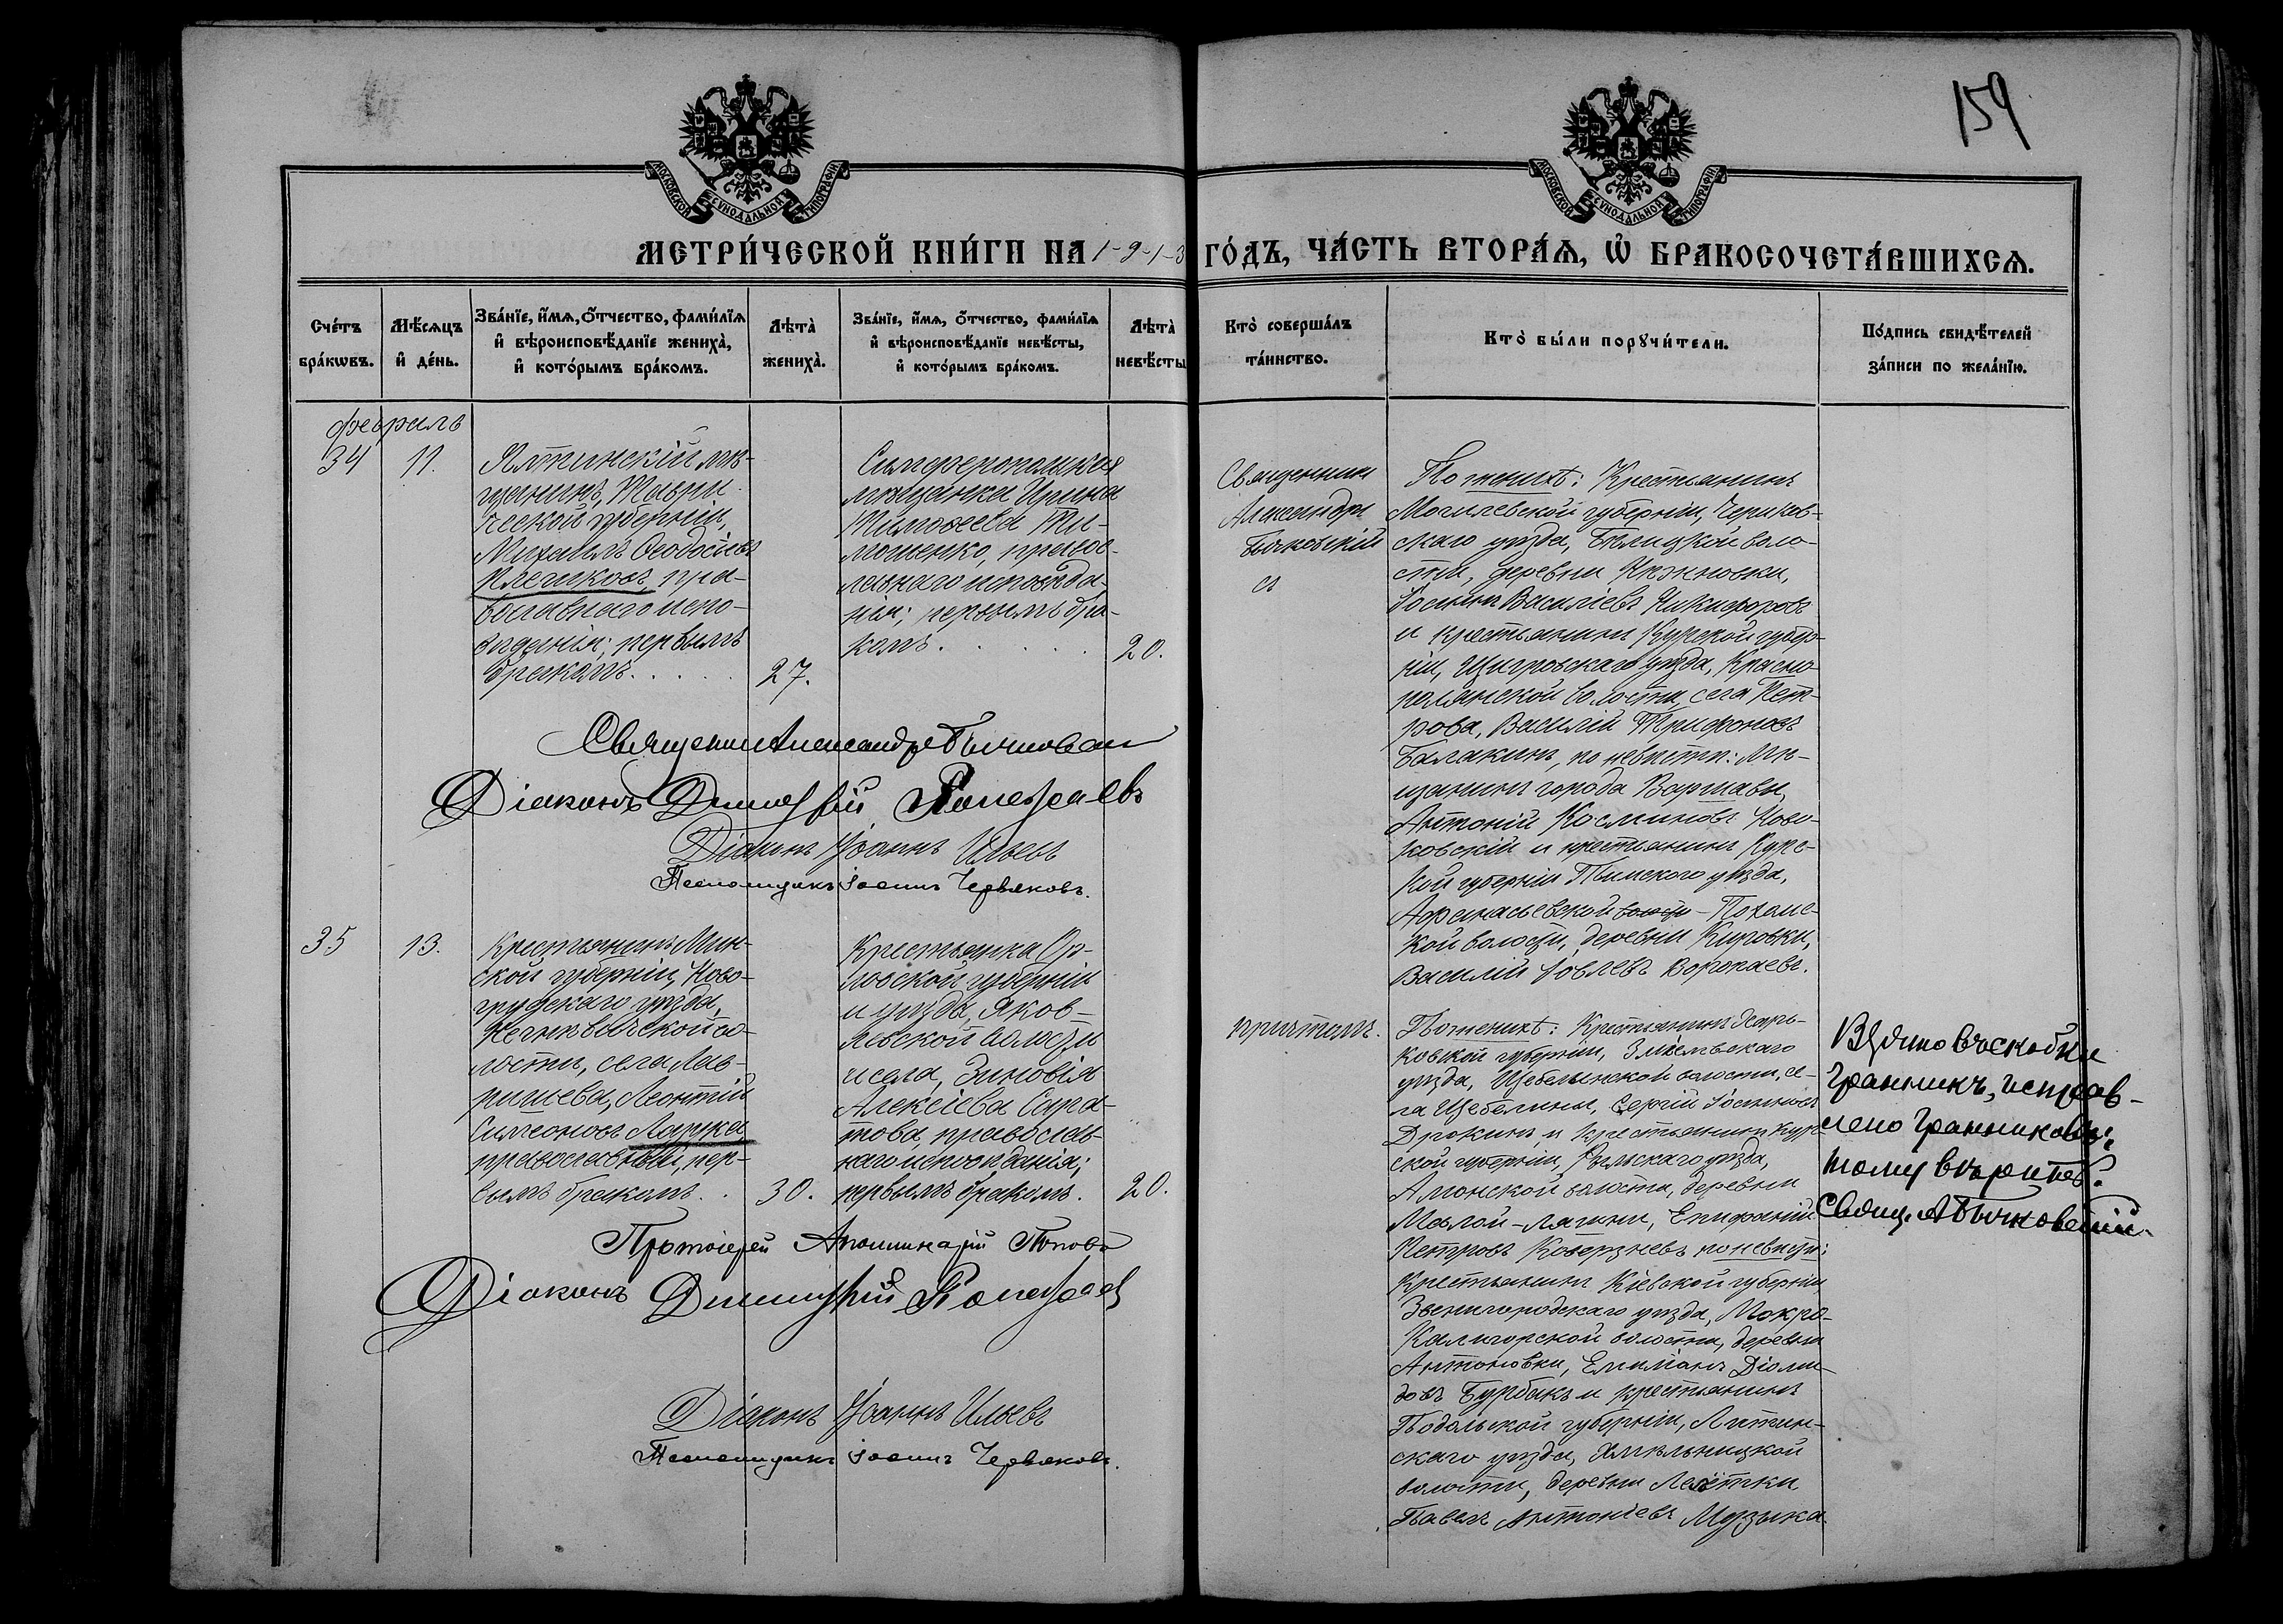 159
МОСКОВСКОЙ СѴНОДАЛЬНОЙ ТИПОГРАФІИ
МОСКОВСКОЙ СѴНОДАЛЬНОЙ ТИПОГРАФІИ
МЕТРИ́ЧЕСКОЙ КНИ́ГИ НА 1-9-1-3 ГО́ДЪ, ЧА́СТЬ ВТОРА́Ѧ, Ѡ҆ БРАКОСОЧЕТА́ВШИХСѦ.
Сче́тъ
бра́кѡвъ.
Мѣ́сяцъ
и҆ де́нь.
Зва́нїе, и҆́мѧ, ѻ҆́тчество, фами́лїѧ
и҆ вѣроисповѣ́данїе жениха̀,
и҆ кото́рымъ бра́комъ.
Лѣта̀
жениха̀.
Зва́нїе, и҆́мѧ, ѻ҆́тчество, фами́лїѧ
и҆ вѣроисповѣ́данїе невѣ́сты,
и҆ кото́рымъ бра́комъ.
Лѣта̀
невѣ́сты
Кто̀ соверша́лъ
та́инство.
Кто̀ бы́ли порꙋчи́тели.
По́дпись свидѣ́телей
за́писи по жела́нїю.
февраль
34
11.
Ялтинскій мѣ-
щанинъ, Таври-
ческой губерніи,
Михаилъ Ѳеодосіевъ
Клечиковъ, пра-
вославнаго испо-
вѣданія; первымъ
бракомъ.
27.
Симферопольская
мѣщанка Ирина
Тимофеева Ти-
мошенко, правос-
лавнаго исповѣда-
нія; первымъ бра-
комъ.
20.
Священникъ
Александръ
Бычковскій
съ
По женихѣ: Крестьянинъ
Могилевской губерніи, Чериков-
скаго уѣзда, Бѣлицкой воло-
сти, деревни
Іоаннъ Василіевъ Никифоровъ
и крестьянинъ Курской губер-
ніи, Щигровскаго уѣзда, Красно-
полянской волости, села Пет-
рова, Василій Трифоновъ
Балакинъ, по невѣстѣ: Мѣ-
щанинъ города Варшавы,
Антоній Косминовъ
и крестьянинъ Курс-
кой губерніи Тимского уѣзда,
Афанасьевской волости - Похонс-
кой волости, деревни Кировки,
Василій Іовлевъ Воропаевъ.
Священникъ Александръ Бычковскій
Діаконъ Димитрій Полетаевъ
Діаконъ Іоаннъ Ильевъ
Псаломщикъ Іоаннъ Червяковъ.
35
13.
Крестьянинъ Мин-
ской губерніи, Ново-
грудскаго уѣзда,
Негнѣвичской во-
лости, села Лав-
ришева, Леонтій
Симеоновъ Ларка
православный, пер-
вымъ бракомъ.
30.
Крестьянка Ор-
ловской губерніи
и уѣзда, Яков-
левской волости
и села, Зиновія
Алексіева Сара-
това, православ-
наго исповѣданія;
первымъ бракомъ.
20.
причтомъ.
По женихѣ: Крестьянинъ Харь-
ковской губерніи, Зміевскаго
уѣзда, Щебелинской волости, се-
ла Щебелины, Сергій Іоанновъ
Дрокинъ и крестьянинъ Кур-
ской губерніи, Рыльскаго уѣзда,
Амонской волости, деревни
Малой-Лягини, Епифаній
Петровъ Коверзневъ по невѣстѣ:
Крестьянинъ Кіевской губерніи,
Звенигородскаго уѣзда, Мокро-
Калигорской волости, деревни
Антоновки, Емиліанъ Діоми-
довъ Бурбакъ и крестьянинъ
Подольской губерніи, Литин-
скаго уѣзда, Хмѣльницкой
волости, деревни Лелётки
Павелъ Антоніевъ Музыка.
Свящ. А Бычковскій.
Протоіерей Аполлинарій Поповъ
Діаконъ Димитрій Полетаевъ
Діаконъ Іоаннъ Ильевъ
Псаломщикъ Іоаннъ Червяковъ.